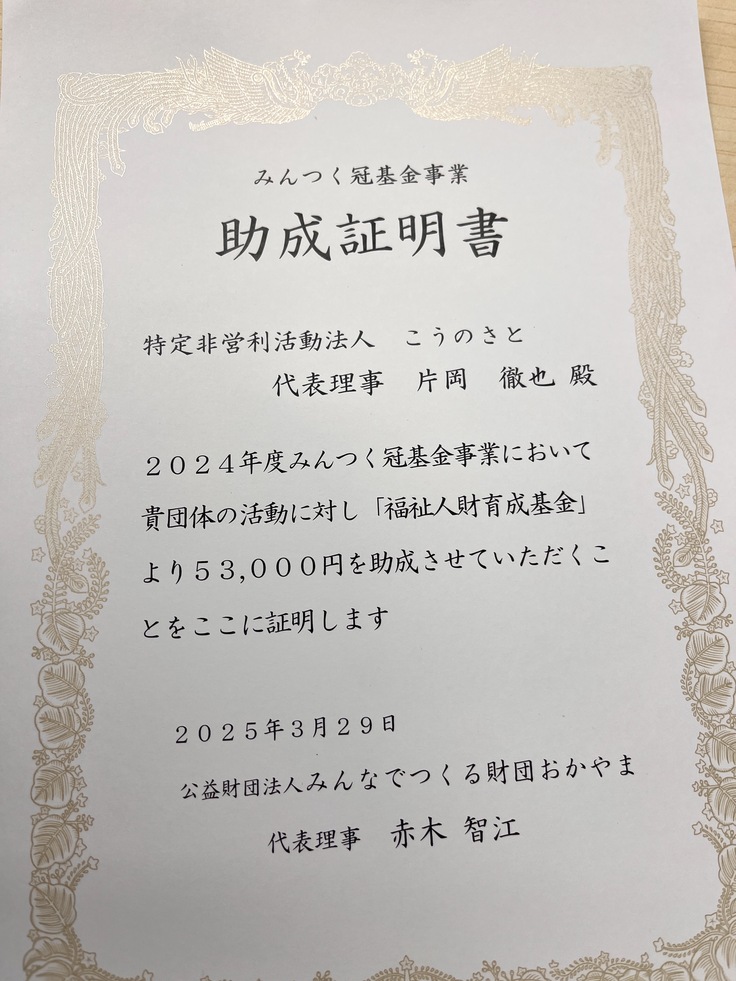 みんつく冠基金事業
助成証明書
特定非営利活動法人　こうのさと
代表理事　片岡　徹也 殿
２０２４年度みんつく冠基金事業において
貴団体の活動に対し「福祉人財育成基金」
より５３,０００円を助成させていただくこ
とをここに証明します
２０２５年３月２９日
公益財団法人みんなでつくる財団おかやま
代表理事　赤木 智江